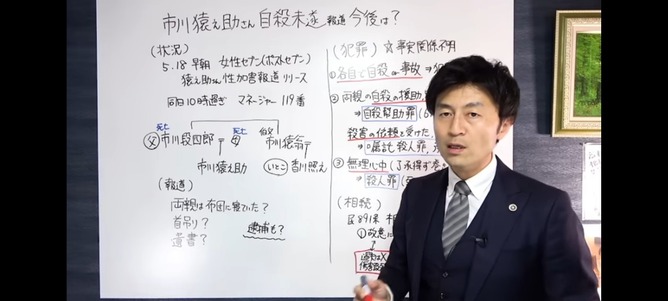 市川猿之助さん自殺未遂 報道 今後は?
(状況)
5.18 早朝 女性セブン(ポストセブン)
猿之助さん性加害報道リリース
同日10時過ぎ マネージャー 119番
死亡
死亡
伯父
父 市川段四郎
母
市川猿翁
市川猿之助
いとこ 香川照之
(報道)
両親は布団に寝ていた?
首吊り?
遺書?
逮捕も?
(犯罪) ☆事実関係不明
①各自で自殺 or 事故 ⇒
②両親の自殺の援助
⇒ 自殺幇助罪
殺害の依頼と受けた
⇒ 嘱託殺人罪
③無理心中(了承得ず
⇒ 殺人罪
(相続)
民891条 相
①故意に